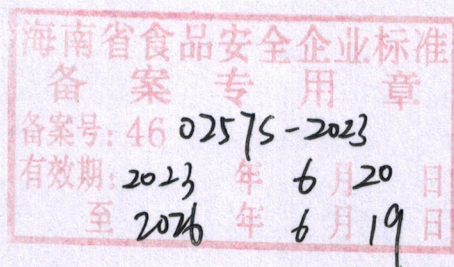 海南省食品安全企业标准
备案专用章
备案号: 46 0257S-2023
有效期: 2023 年 6 月 20 日
至 2026 年 6 月 19 日